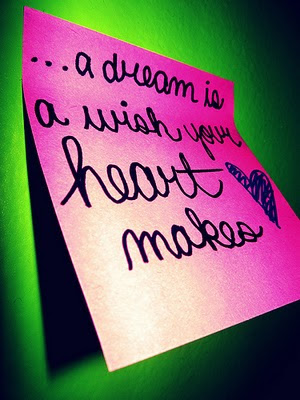 ...a dream is
a wish your
heart
makes